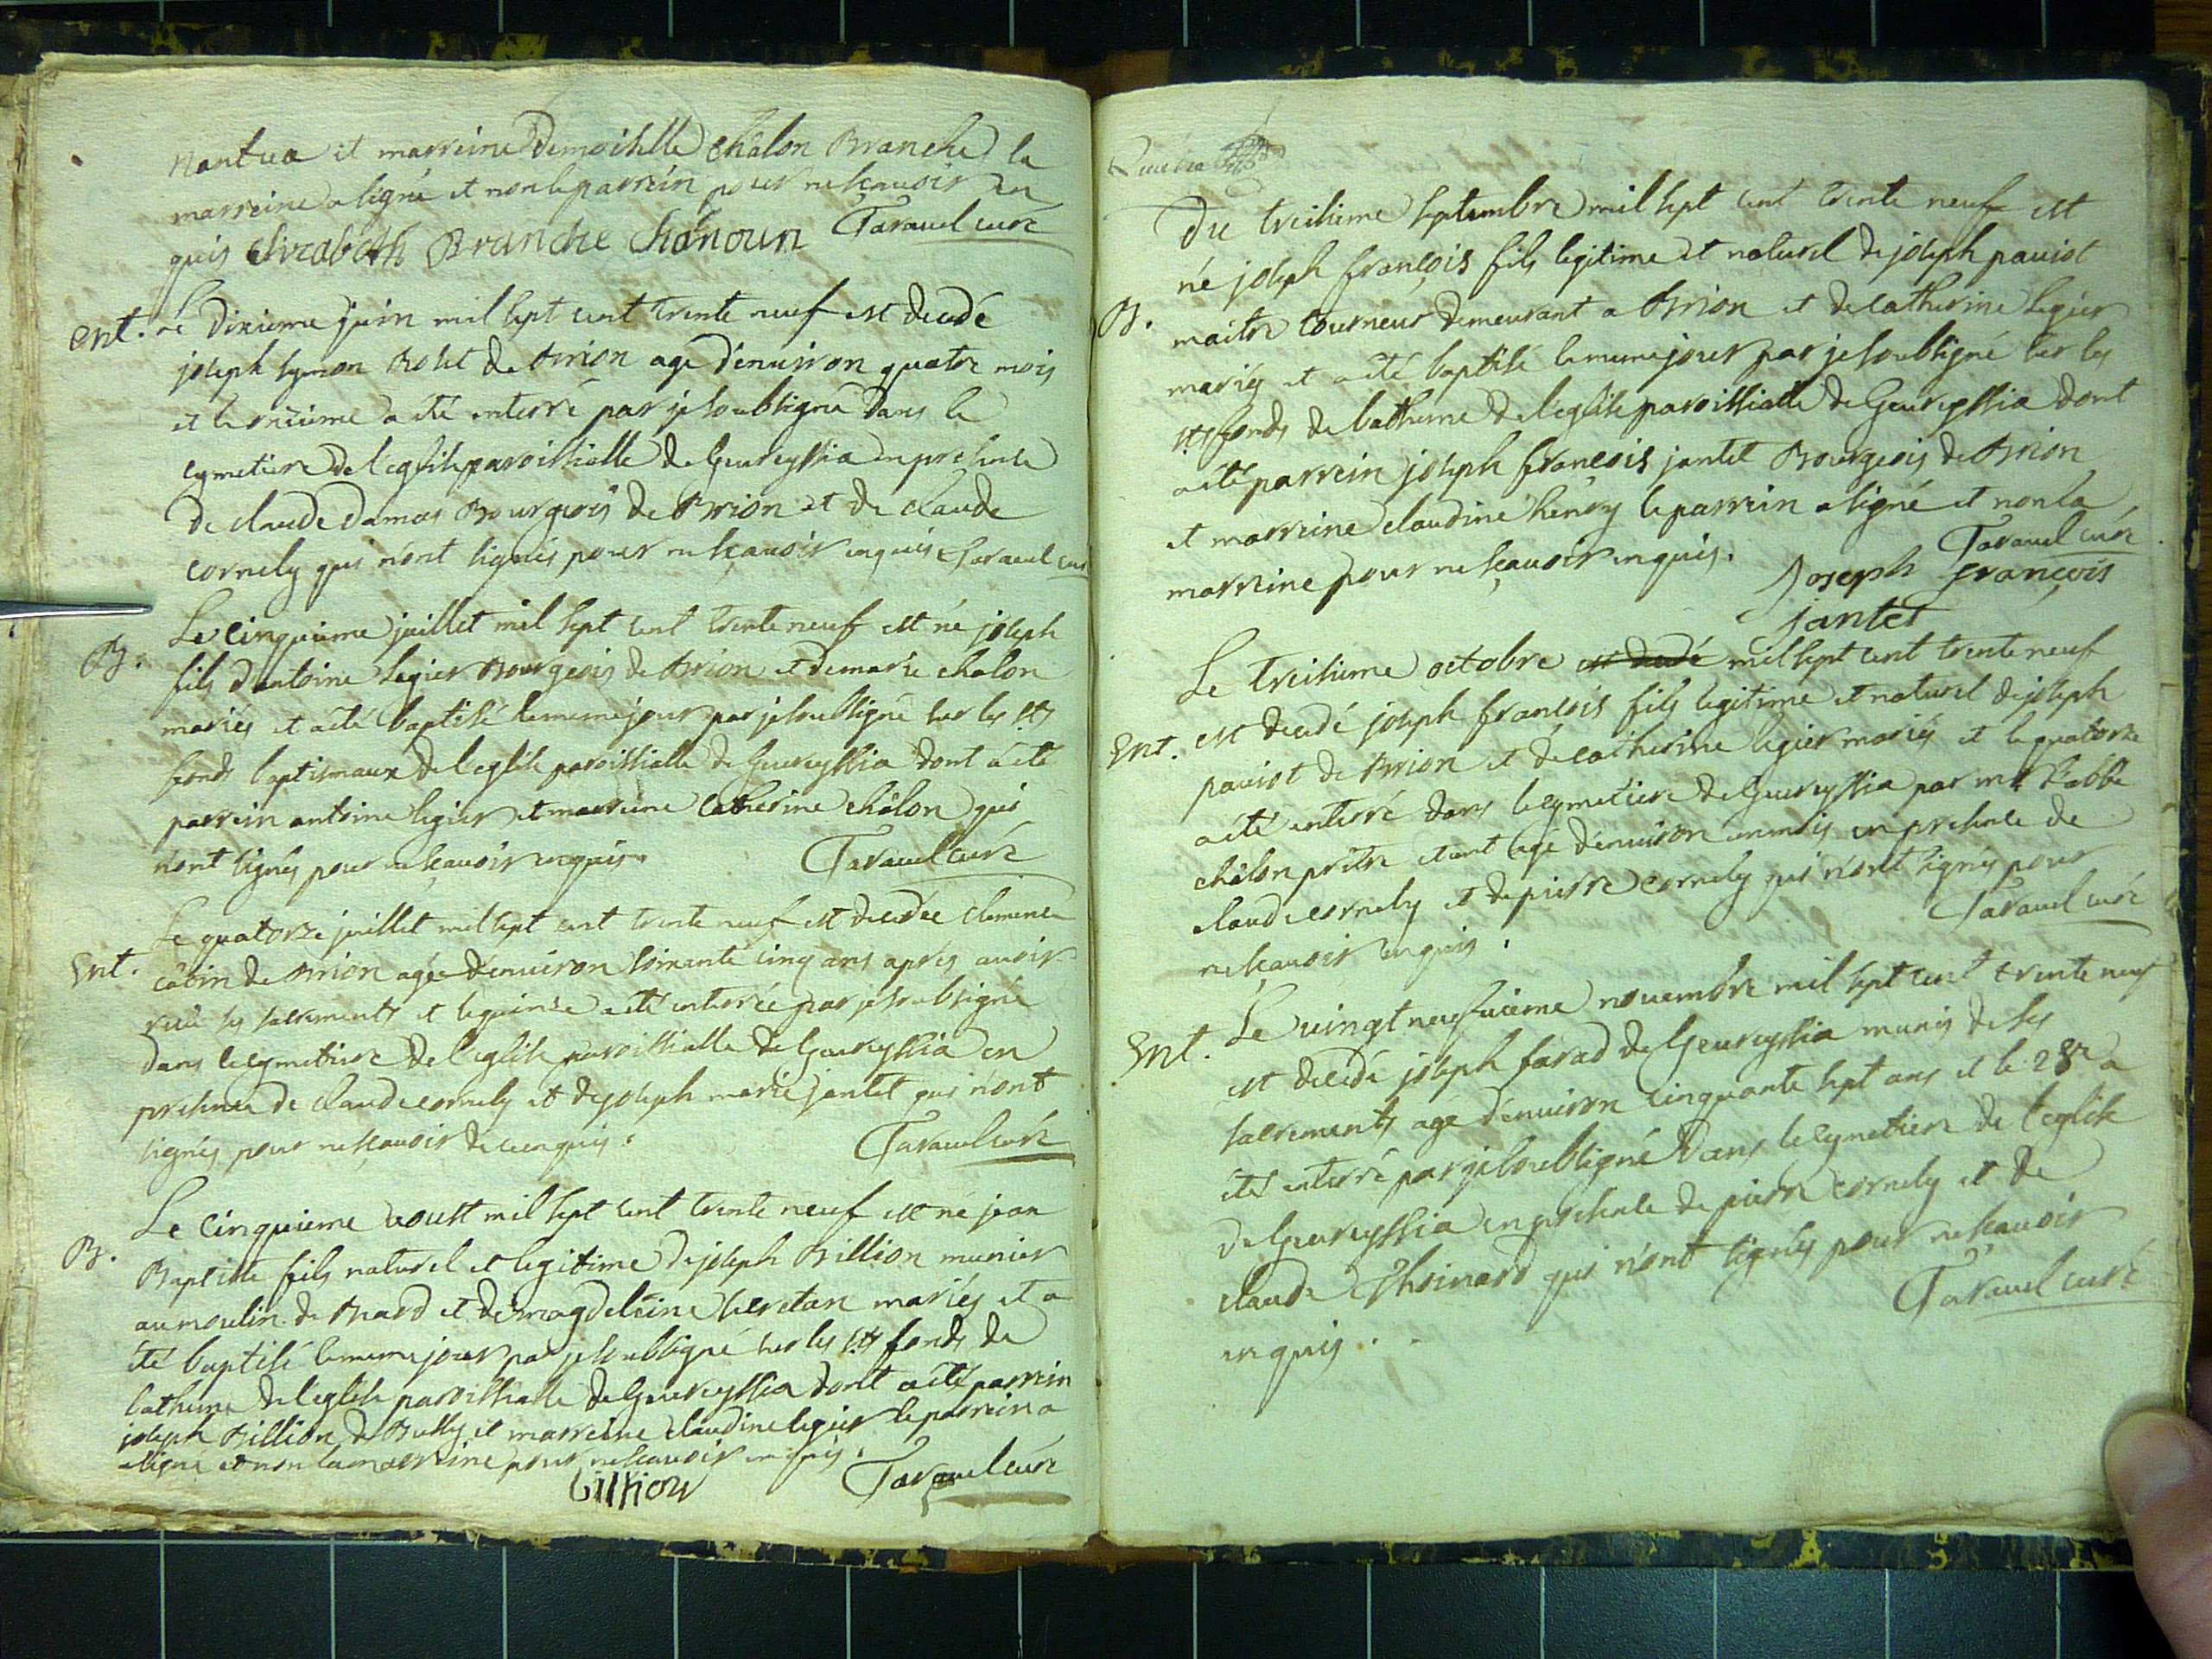 Nantua et marreine demoiselle Châlon Branche la
marreine a signé et non le parrein pour ne scauoir en
quis Elizabeth Branche Chanoun Tarauel curé
Ent. Le dixieme juin mil sept cent trente neuf est decedé
joseph symon Rolet de Brion agé d'enuiron quatre mois
et le onzieme a eté enterré par je soubsigné dans le
cymetiere de l'eglise paroissialle de Geureyssia en presence
de claude damas Bourgeois de Brion et de claude
cornely qui n'ont signés pour ne scauoir enquis Tarauel curé
B. Le cinquieme juillet mil sept cent trente neuf est né joseph
fils d'antoine legier Bourgeois de Brion et de marie chalon
mariés et a eté baptisé le meme jour par je soubsigné sur les sts
fonds baptismaux de l'eglise paroissialle de Geureyssia dont a eté
parrein antoine legier et marreine catherine châlon qui
n'ont signés pour ne scauoir enquis. Tarauel curé
Ent. Le quatorze juillet mil sept cent trente neuf est decedée clemence
câtin de Brion agée d'enuiron soixante cinq ans apres auoir
recu ses sacrements et le quinze a eté enterrée par je soubsigné
dans le cymetiere de l'eglise paroissialle de Geureyssia en
presence de claude cornely et de joseph marie jantet qui n'ont
signés pour ne scauoir de ce enquis. Tarauel curé
B. Le cinquieme aoust mil sept cent trente neuf est né jean
Baptiste fils naturel et legitime de joseph Billion munier
au moulin de Brard et de magdeleine beretan mariés et a
eté baptisé le meme jour par je soubsigné sur les sts fonds de
batheme de l'eglise paroissialle de Geureyssia dont a eté parrein
joseph Billion de Bussy et marreine claudine legier le parrein a
signé et non la marreine pour ne scauoir enquis.
billiou Tarauel curé
Du treisieme septembre mil sept cent trente neuf est
né joseph françois fils legitime et naturel de joseph pauiot
B. maitre tourneur demeurant a Brion et de catherine legier
mariés et a eté baptisé le meme jour par je soubsigné sur les
sts fonds de batheme de l'eglise paroissialle de Geureyssia dont
a eté parrein joseph françois jantet Bourgeois de Brion
et marreine claudine henry le parrein a signé et non la
marreine pour ne scauoir enquis. Tarauel curé
Joseph françois
jantet
Le treisieme octobre est decedé mil sept cent trente neuf
Ent. est decedé joseph françois fils legitime et naturel de joseph
pauiot de Brion et de catherine legier mariés et le quatorze
a eté enterré dans le cymetiere de Geureyssia par mr l'abbé
châlon prêtre etant agé d'enuiron un mois en presence de
claude cornely et de pierre cornely qui n'ont signés pour
ne scauoir enquis. Tarauel curé
Ent. Le uingt neufuieme nouembre mil sept cent trente neuf
est decedé joseph farad de Geureyssia munis de ses
sacrements agé d'enuiron cinquante sept ans et le 28e a
eté enterré par je soubsigné dans le cymetiere de l'eglise
de Geureyssia en presence de pierre cornely et de
claude Thoinard qui n'ont signés pour ne scauoir
enquis. Tarauel curé